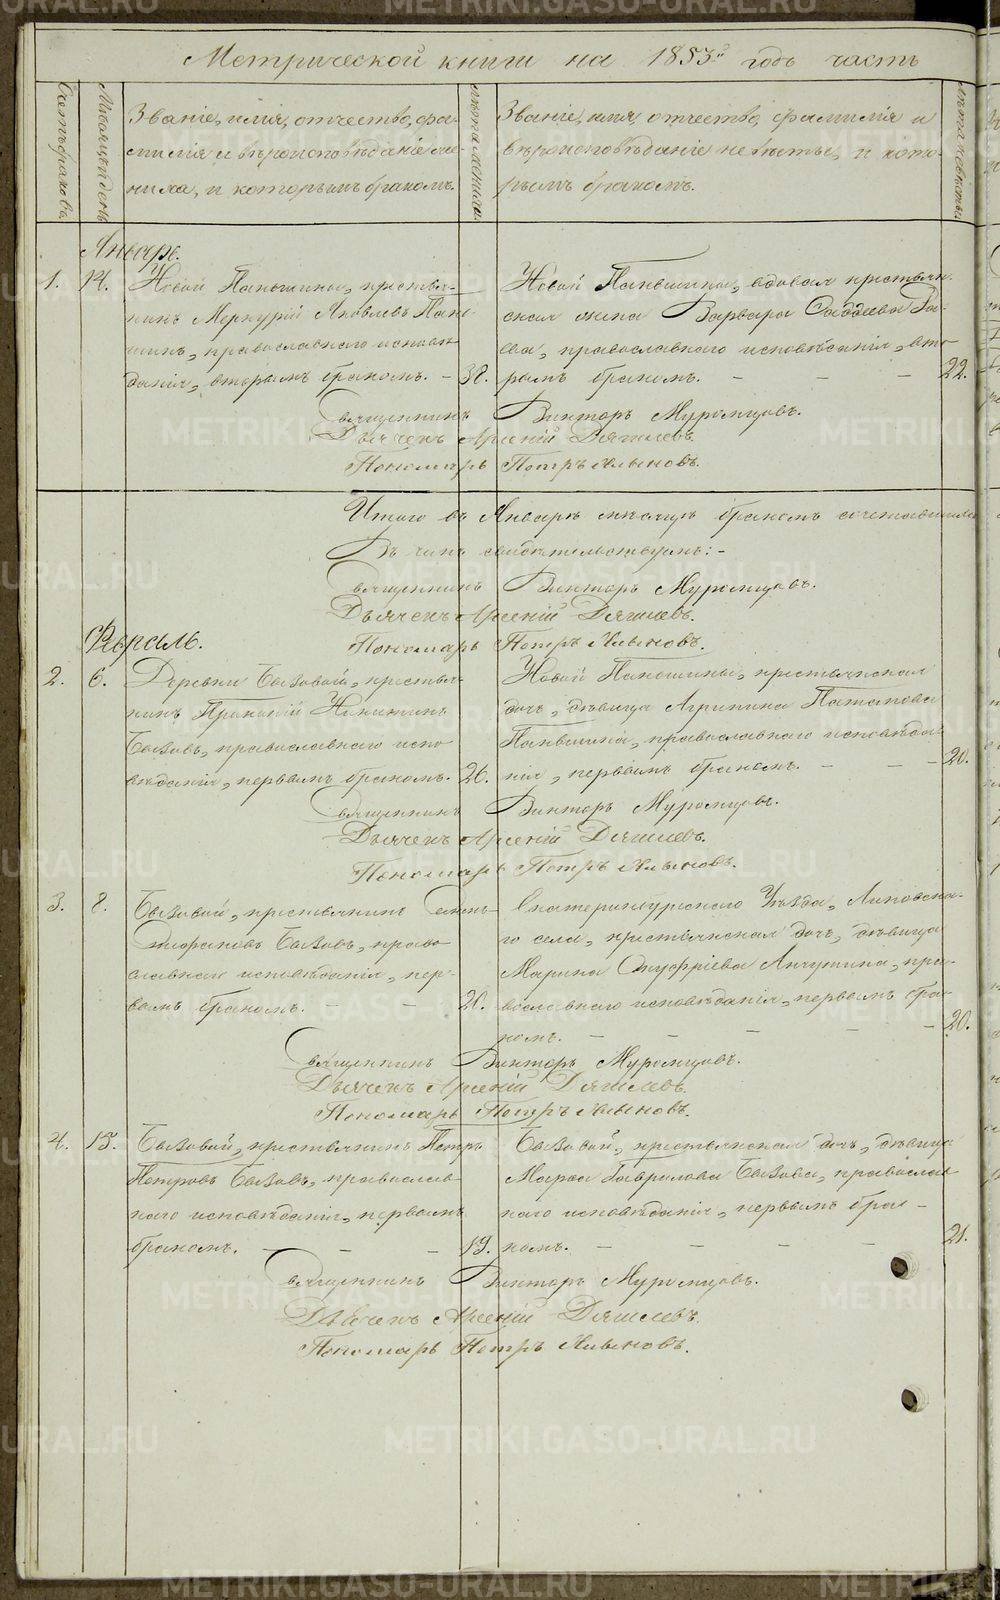 Метрической книги на 1853й годъ часть
Счетъ браковъ
Мѣсяцъ и день
Званіе, имя, отчество, фа-
милія и вѣроисповѣданіе же-
ниха, и которымъ бракомъ.
лѣта жениха
Званіе, имя, отчество, фамилія и
вѣроисповѣданіе невѣсты, и кото-
рымъ бракомъ.
лѣта невѣсты
Январь.
1. 14. Новой Паньшины, крестья-
нинъ Меркурій Яковлевъ Пань-
шинъ, православнаго исповѣ-
данія, вторымъ бракомъ. - 38.
Новой Паньшины, вдовая крестьян-
ская жена Варвара Фаддеева
православнаго исповѣданія, вто-
рымъ бракомъ. - - - 22.
Священникъ Викторъ Муромцовъ.
Дьячекъ Арсеній Дягилевъ.
Пономарь Петръ Хлыновъ.
Итого въ Январѣ мѣсяцѣ бракомъ сочетавшихся
Въ чемъ свидѣтельствуемъ: -
Священникъ Викторъ Муромцовъ.
Дьячекъ Арсеній Дягилевъ.
Пономарь Петръ Хлыновъ.
Февраль.
2. 6. Деревни Бызовой, крестья-
нинъ Прокопій Никитинъ
Бызовъ, православнаго испо-
вѣданія, первымъ бракомъ. 26.
Новой Паньшины, крестьянская
дочь, дѣвица Агрипина Потапова
Паньшина, православнаго исповѣда-
нія, первымъ бракомъ. - - - 20.
Священникъ Викторъ Муромцовъ.
Дьячекъ Арсеній Дягилевъ.
Пономарь Петръ Хлыновъ.
3. 8. Бызовой, крестьянинъ Семенъ
Стефановъ Бызовъ, право-
славнаго исповѣданія, пер-
вымъ бракомъ. - - 20.
Екатеринбургскаго Уѣзда, Липовска-
го села, крестьянская дочь, дѣвица
Марина Онуфріева Анчутина, пра-
вославнаго исповѣданія, первымъ бра-
комъ. - - - - - 20.
Священникъ Викторъ Муромцовъ.
Дьячекъ Арсеній Дягилевъ.
Пономарь Петръ Хлыновъ.
4. 15. Бызовой, крестьянинъ Петръ
Петровъ Бызовъ, православ-
наго исповѣданія, первымъ
бракомъ. - - - 19.
Бызовой, крестьянская дочь, дѣвица
Марѳа Гаврилова Бызова, православ-
наго исповѣданія, первымъ бра-
комъ. - - - - 21.
Священникъ Викторъ Муромцовъ.
Дьячекъ Арсеній Дягилевъ.
Пономарь Петръ Хлыновъ.
METRIKI.GASO-URAL.RU